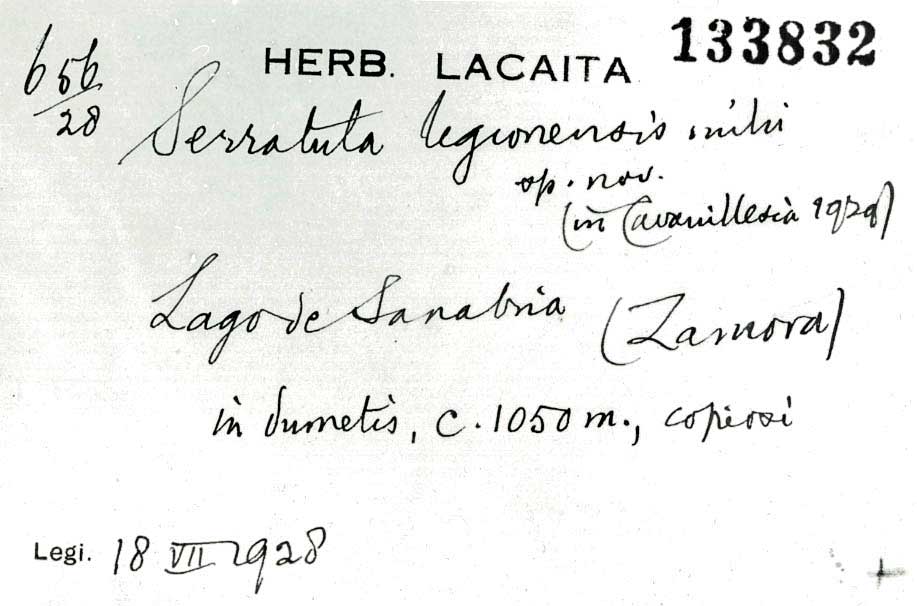 656/28
HERB. LACAITA 133832
Serratula legionensis mihi
sp. nov.
(in Cavanillesia 1929)
Lago de Sanabria (Zamora)
in dumetis, c. 1050 m., copiosi
Legi. 18 VII 1928